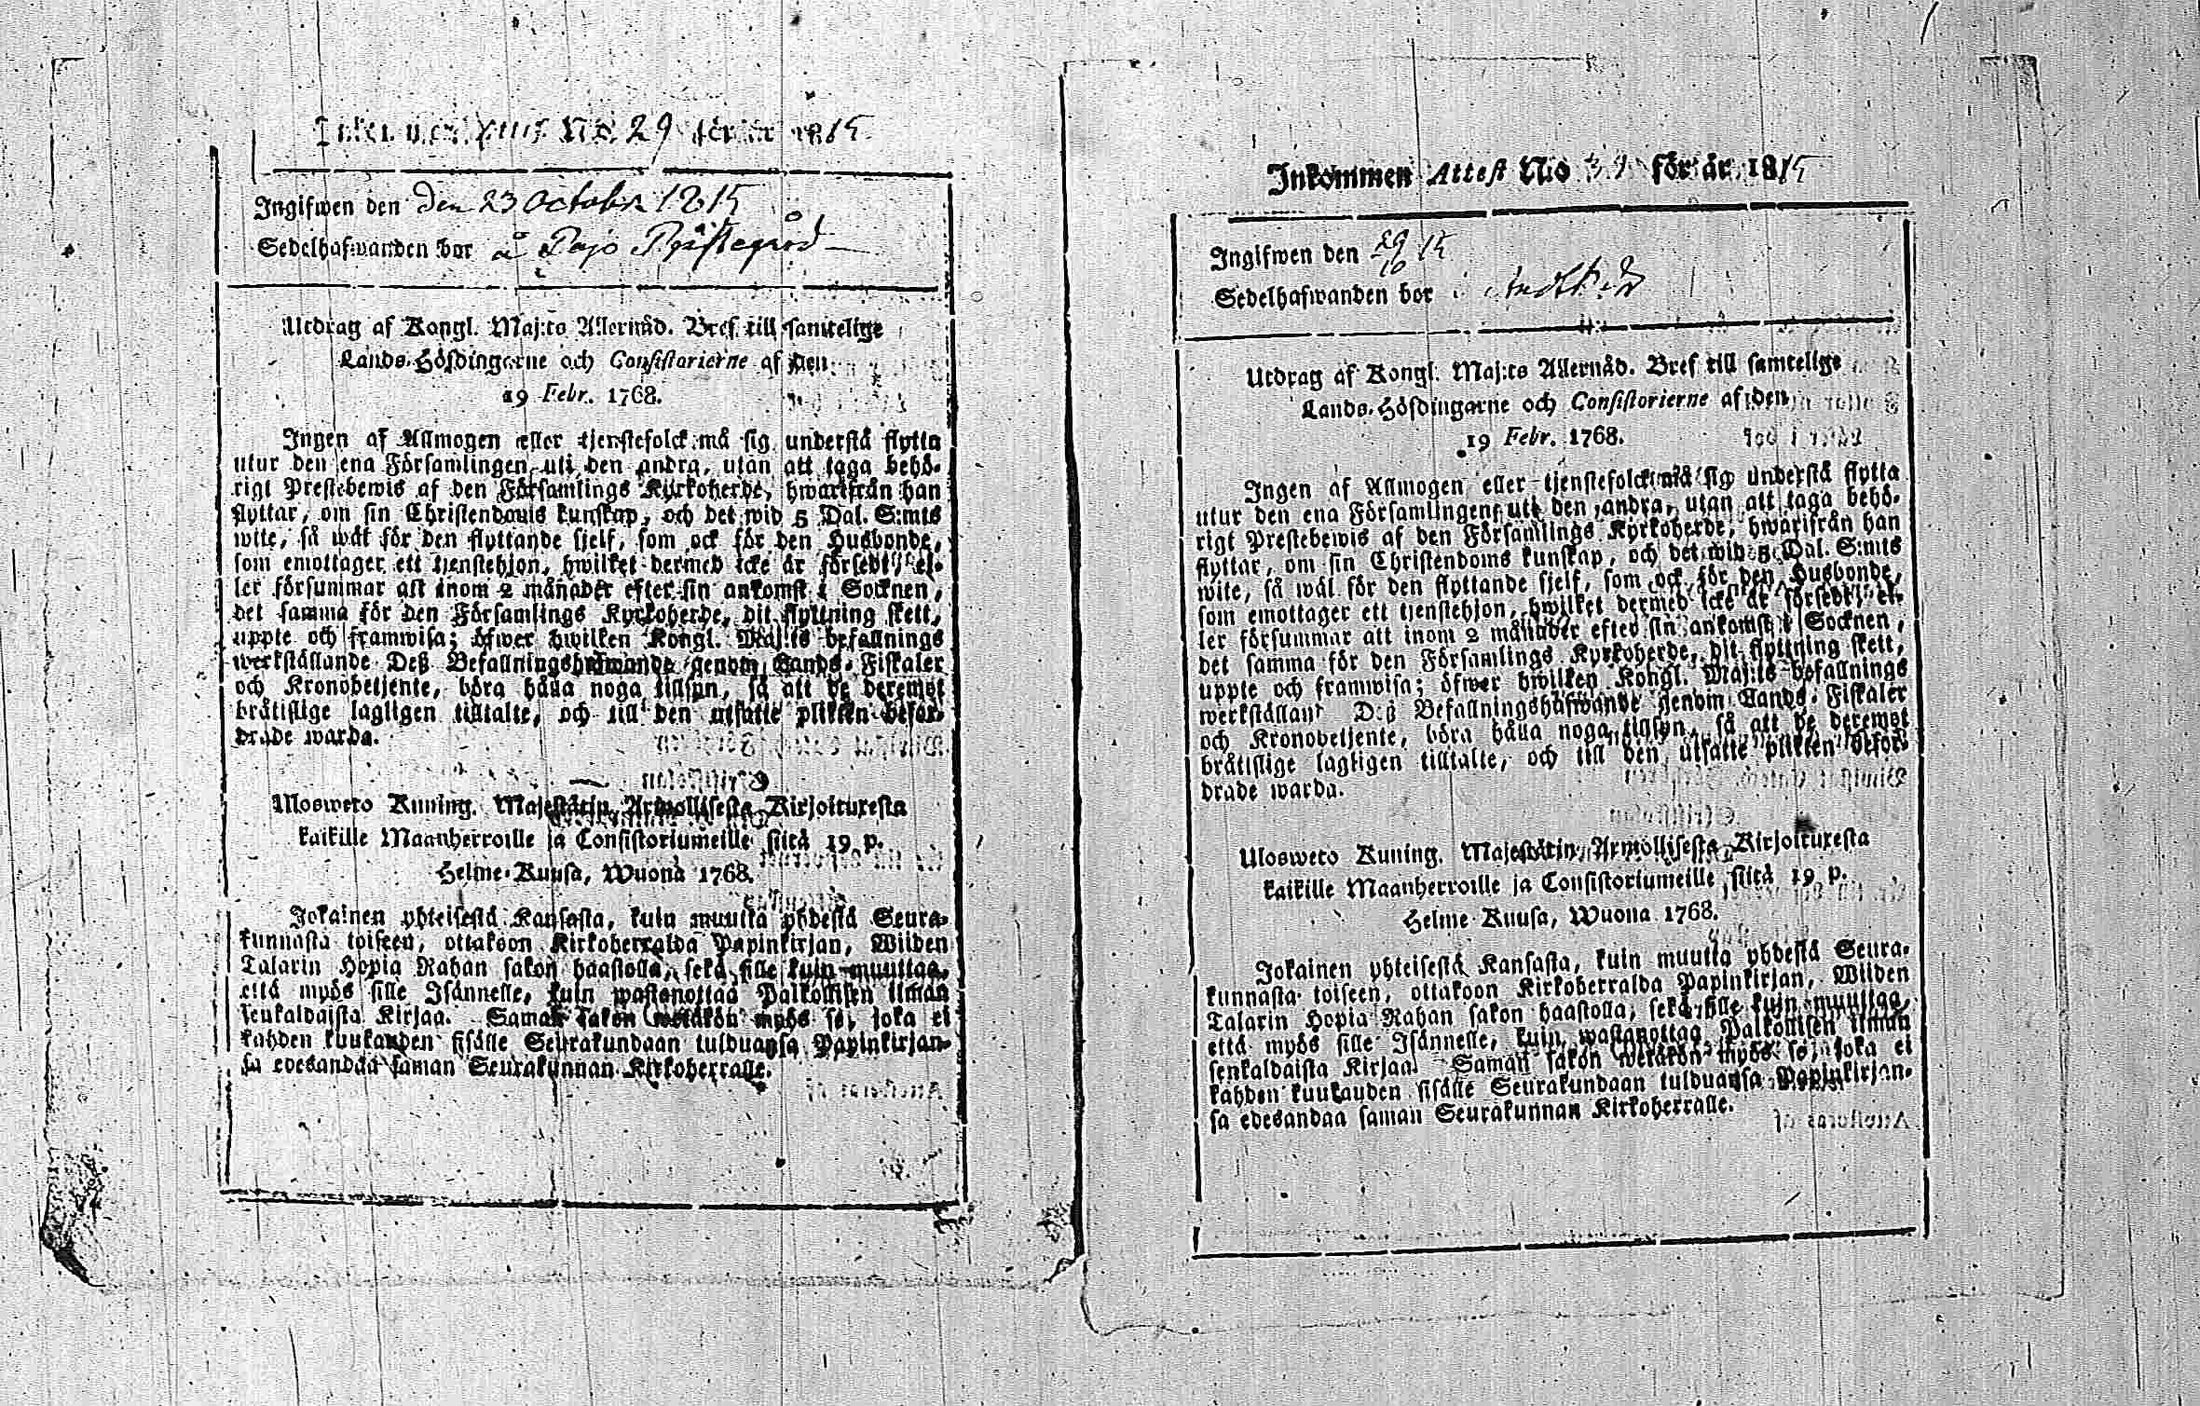 No 29 för år 1815
Ingifwen den den 23 October 1815
Sedelhafwanden bor å Pojo Prästegård
Utdrag af Kongl. Maj:ts Allernåd. Bref till samtelige
Lands-Höfdingarne och Consistorierne af den
19 Febr. 1768.
Ingen af Allmogen eller tjenstefolck må sig understå flytta
utur den ena Församlingen uti den andra, utan att taga behö-
rigt Prestebewis af den Församlings Kyrkoherde, hwarifrån han
flyttar, om sin Christendoms kunskap, och det wid 5 Dal. S:mts
wite, så wäl för den flyttande sjelf, som ock för den Husbonde,
som emottager ett tjenstehjon, hwilket dermed icke är försedt, el-
ler försummar att inom 2 månader efter sin ankomst i Socknen,
det samma för den Församlings Kyrkoherde, dit flyttning skett,
uppte och framwisa; öfwer hwilken Kongl. Maj:ts befallnings
werkställande Deß Befallningshafwande genom Lands-Fiskaler
och Kronobetjente, böra hålla noga tillsyn, så att de deremot
bråtislige lagligen tilltalte, och till den utsatte plikten befor-
drade warda.
Ulosweto Kuning. Majestätin Armollisesta Kirjoituxesta
kaikille Maanherroille ja Consistoriumeille siitä 19 p.
Helme-Kuusa, Wuona 1768.
Jokainen yhteisestä Kansasta, kuin muutta yhdestä Seura-
kunnasta toiseen, ottakoon Kirkoherralda Papinkirjan, Wiiden
Talarin Hopia Rahan sakon haastolla, sekä sille kuin muuttaa,
että myös sille Isännelle, kuin wastanottaa Palkollisen ilman
senkaldaista Kirjaa. Saman sakon wetäkön myös se, joka ei
kahden kuukauden sisälle Seurakundaan tulduansa Papinkirjan-
sa edesandaa saman Seurakunnan Kirkoherralle.
Inkommen Attest No för år 1815
Ingifwen den 29/10 15
Sedelhafwanden bor
Utdrag af Kongl. Maj:ts Allernåd. Bref till samtelige
Lands-Höfdingarne och Consistorierne af den
19 Febr. 1768.
Ingen af Allmogen eller tjenstefolck må sig understå flytta
utur den ena Församlingen uti den andra, utan att taga behö-
rigt Prestebewis af den Församlings Kyrkoherde, hwarifrån han
flyttar, om sin Christendoms kunskap, och det wid 5 Dal. S:mts
wite, så wäl för den flyttande sjelf, som ock för den Husbonde,
som emottager ett tjenstehjon, hwilket dermed icke är försedt, el-
ler försummar att inom 2 månader efter sin ankomst i Socknen,
det samma för den Församlings Kyrkoherde, dit flyttning skett,
uppte och framwisa; öfwer hwilken Kongl. Maj:ts befallnings
werkställand Deß Befallningshafwande genom Lands-Fiskaler
och Kronobetjente, böra hålla noga tillsyn, så att de deremot
bråtislige lagligen tilltalte, och till den utsatte plikten befor-
drade warda.
Ulosweto Kuning. Majestätin Armollisesta Kirjoituxesta
kaikille Maanherroille ja Consistoriumeille siitä 19 p.
Helme-Kuusa, Wuona 1768.
Jokainen yhteisestä Kansasta, kuin muutta yhdestä Seura-
kunnasta toiseen, ottakoon Kirkoherralda Papinkirjan, Wiiden
Talarin Hopia Rahan sakon haastolla, sekä sille kuin muuttaa,
että myös sille Isännelle, kuin wastanottaa Palkollisen ilman
senkaldaista Kirjaa. Saman sakon wetäkön myös se, joka ei
kahden kuukauden sisälle Seurakundaan tulduansa Papinkirjan-
sa edesandaa saman Seurakunnan Kirkoherralle.